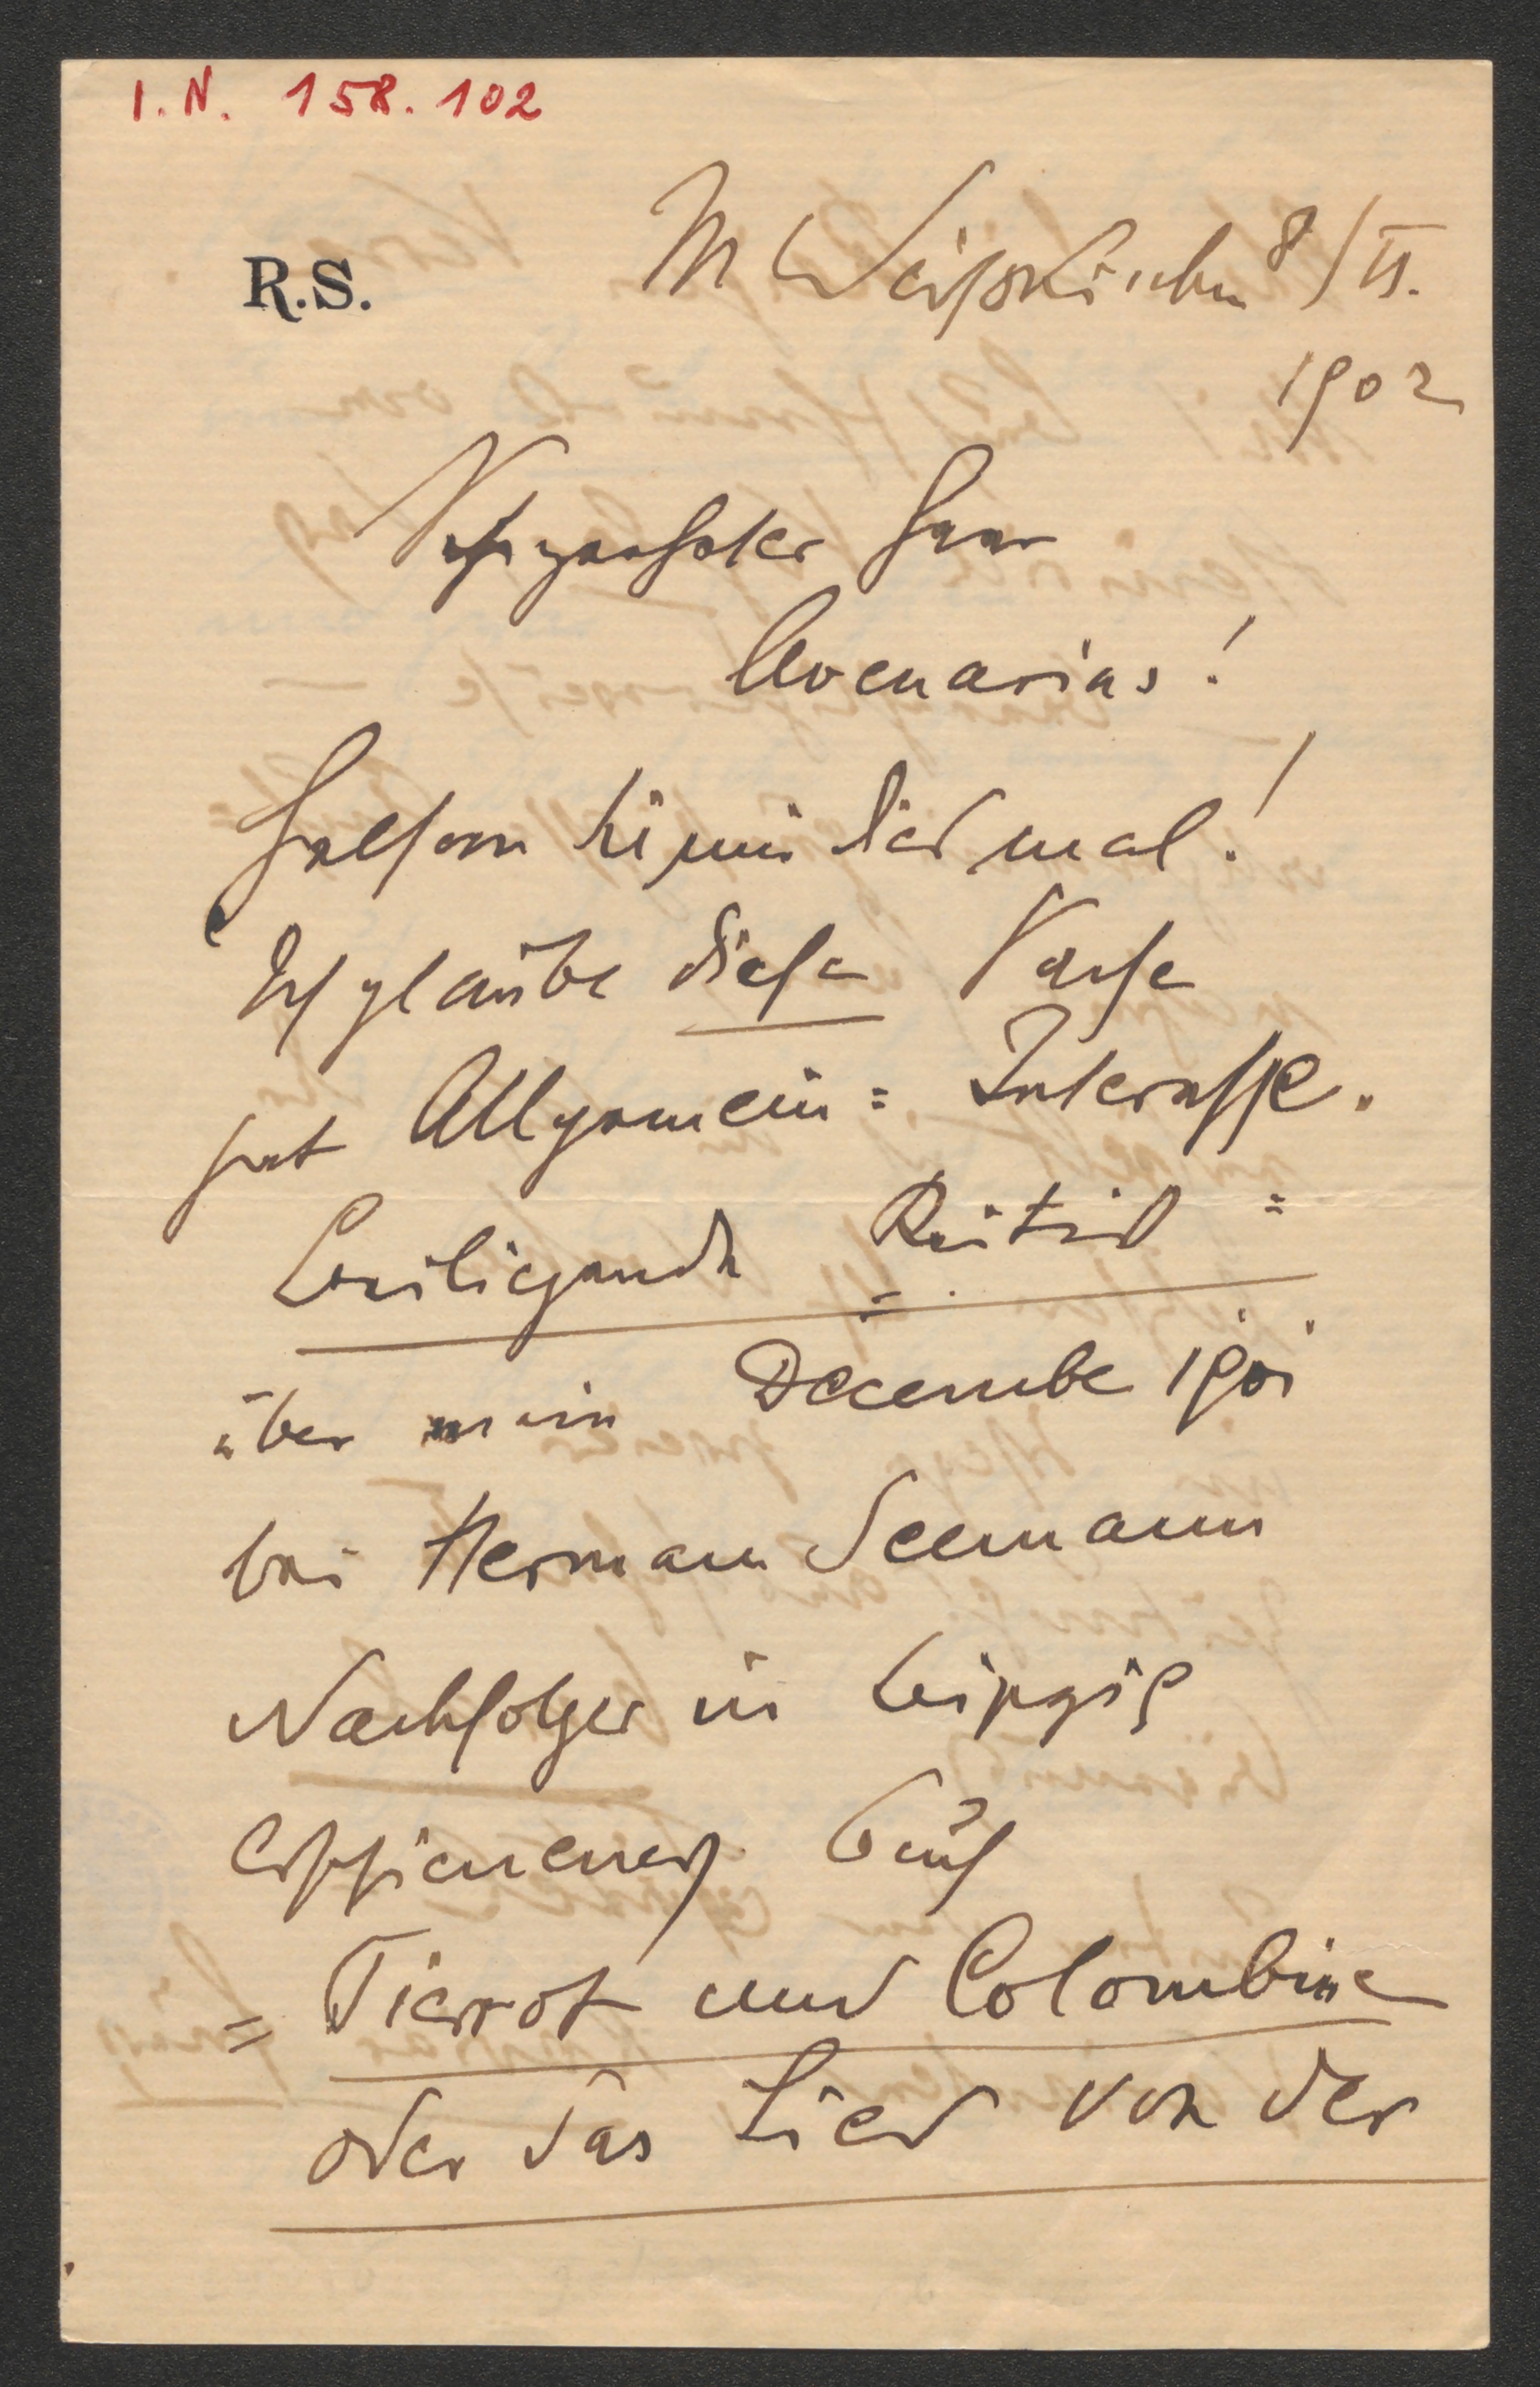 I.N. 158.102
R.S.
M Weißkirchen 8/II.
1902
Verehrtester Herr
Avenarius!
Helfen Sie mir diesmal!
Ich glaube diese Sache
hat Allgemein= Interesse.
Beiliegende Kritik =
über mein Decembe 1901
bei Hermann Seemann
Nachfolger in Leipzig
erschienenes Buch
= Pierrot und Colombine
oder das Lied von der